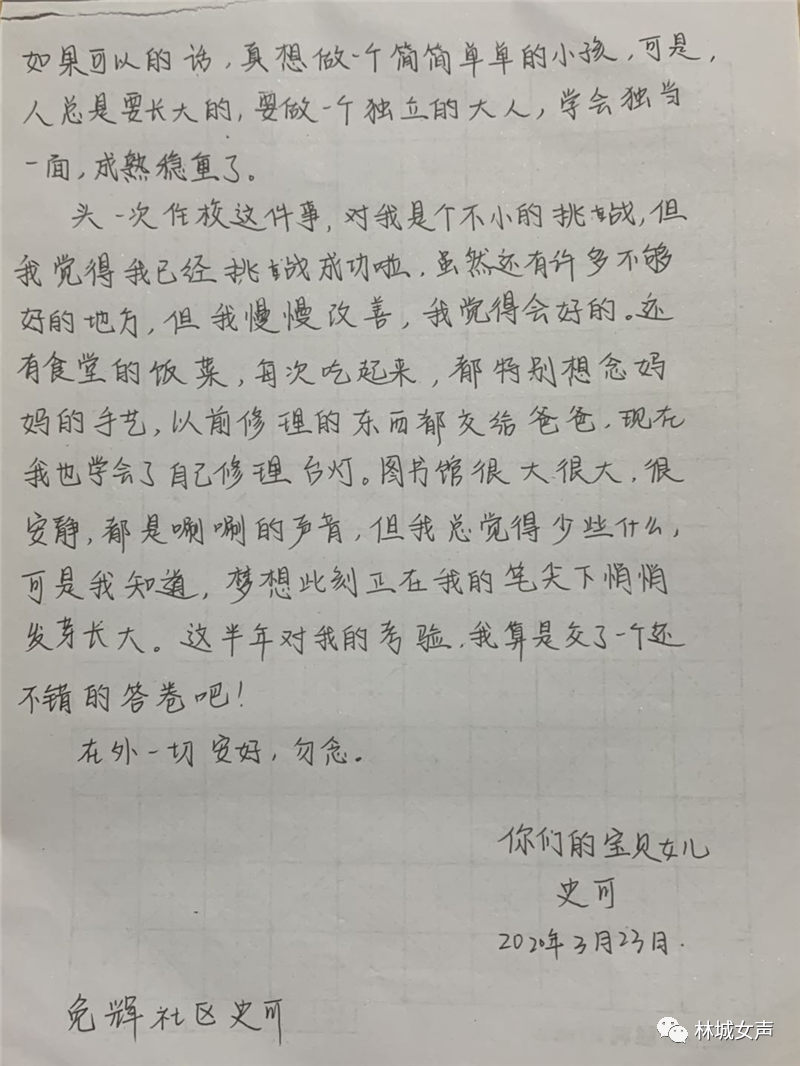 如果可以的话，真想做一个简简单单的小孩，可是，
人总是要长大的，要做一个独立的大人，学会独当
一面，成熟稳重了。
头一次住校这件事，对我是个不小的挑战，但
我觉得我已经挑战成功啦，虽然还有许多不够
好的地方，但我慢慢改善，我觉得会好的。还
有食堂的饭菜，每次吃起来，都特别想念妈
妈的手艺，以前修理的东西都交给爸爸，现在
我也学会了自己修理台灯。图书馆很大很大，很
安静，都是唰唰的声音，但我总觉得少些什么，
可是我知道，梦想此刻正在我的笔尖下悄悄
发芽长大。这半年对我的考验，我算是交了一个还
不错的答卷吧！
在外一切安好，勿念。
你们的宝贝女儿
史可
2020年3月23日.
兔辉社区史可
林城女声